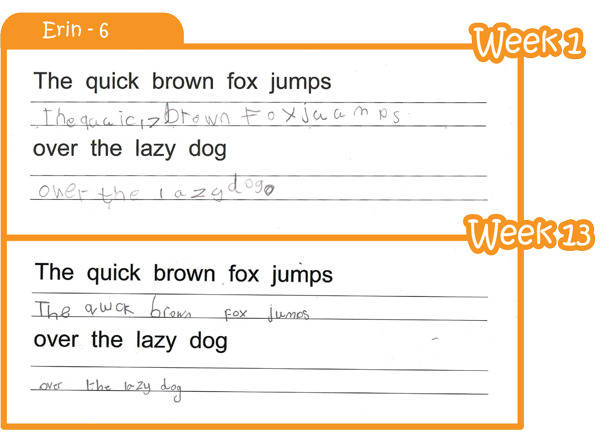 Erin - 6
Week 1
The quick brown fox jumps
The quaic17 brown Fox juamps
over the lazy dog
over the lazy dog
Week 13
The quick brown fox jumps
The quick brown fox jumps
over the lazy dog
over the lazy dog